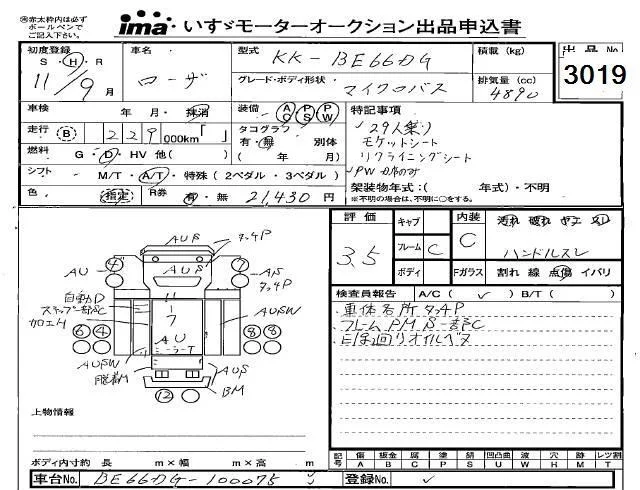 ㊟赤太枠内は必ず
ボールペンで
ご記入下さい。
ima いすゞモーターオークション出品申込書
初度登録
S・H・R
11/9月
車名
ローザ
型式
KK-BE66DG
グレード・ボディ形状
マイクロバス
積載 (kg)
排気量 (cc)
4890
出品No
3019
車検 年 月・抹消
装備 AC PS PW
特記事項
走行 B 229 000km「 」
タコグラフ 別体
有・無 ( 年 月)
29人乗り
モケットシート
リクライニングシート
PW 席のみ
燃料 G・D・HV 他( )
シフト M/T・A/T・特殊 (2ペダル・3ペダル)
架装物年式:( 年式)・不明
※不明の場合は、不明に○をする。
色 指定 R券 有・無 21,430 円
評価
3.5
キャブ
フレーム C
ボディ
内装
C
汚れ 破れ ヤニ スリ
ハンドルスレ
Fガラス 割れ 線 点傷 イバリ
検査員報告 A/C( ✓ ) B/T( )
車体各所タッチP
フレームPM S一部C
E/g廻りオイルベタ
AUS タッチP
4 7
AU AS
タッチP
自動D
ステップ一部SC
加エM
11-7
AUSW
6 4 8 8
AU
ミラーT
AUSW
脱着M
AUS
12 BM
上物情報
ボディ内寸約 長 m×幅 m×高 m
記号 傷 板金 腐 塗 錆 凹凸曲 波 穴 外 レンズ割
A B C P S U W H M T
車台No. BE66DG-100075
登録No.